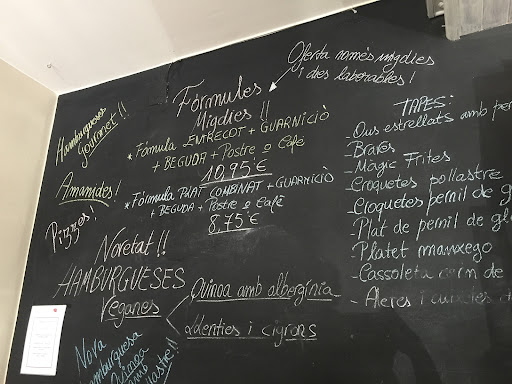 Oferta només migdies
i dies laborables!
Fórmules
Migdies !!
* Fórmula ENTRECOT + GUARNICIÒ
+ BEGUDA + Postre o Café
10,95 €
* Fórmula PLAT COMBINAT + GUARNICIÒ
+ BEGUDA + Postre o Café
8,75 €
Hamburgueses
gourmet !!
Amanides!
Pizzes!
Novetat !!
HAMBURGUESES
Veganes
Quinoa amb albergínia
Llenties i cigrons
Nova
Hamburguesa
Quinoa
amb
TAPES:
- Ous estrellats amb
- Braves
- Màgic Frites
- Croquetes pollastre
- Croquetes pernil de
- Plat de pernil de
- Platet manxego
- Cassoleta carn de
- Aleres i